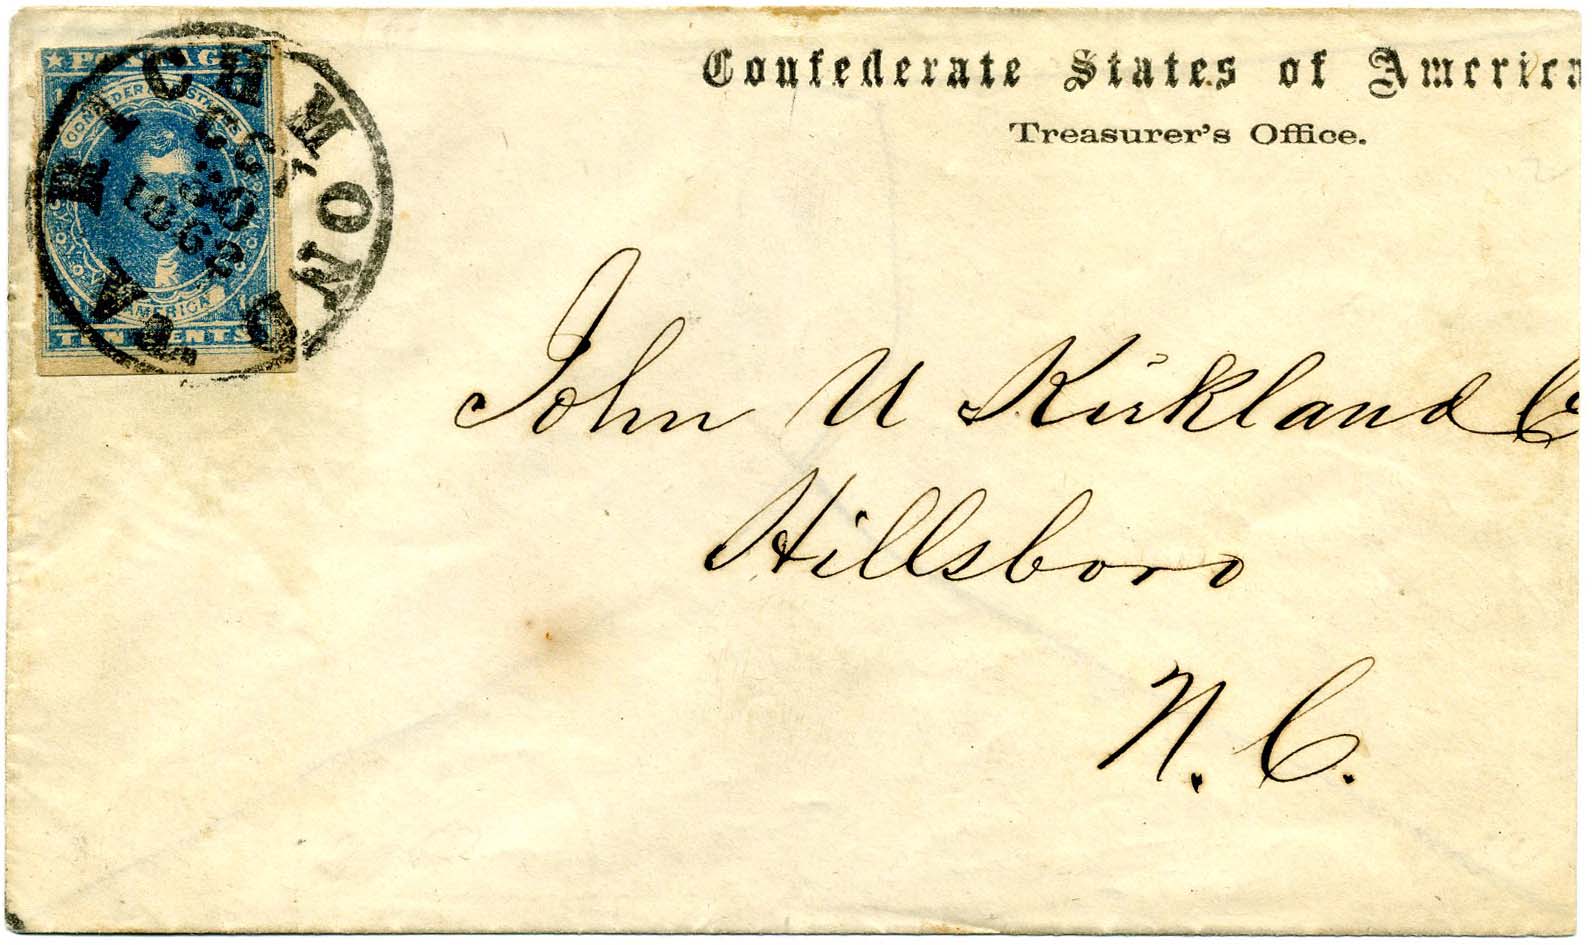 POSTAGE
CONFEDERATE STATES
AMERICA
TEN CENTS
RICHMOND VA.
1862
Confederate States of America
Treasurer's Office.
John U Kirkland
Hillsboro
N. C.